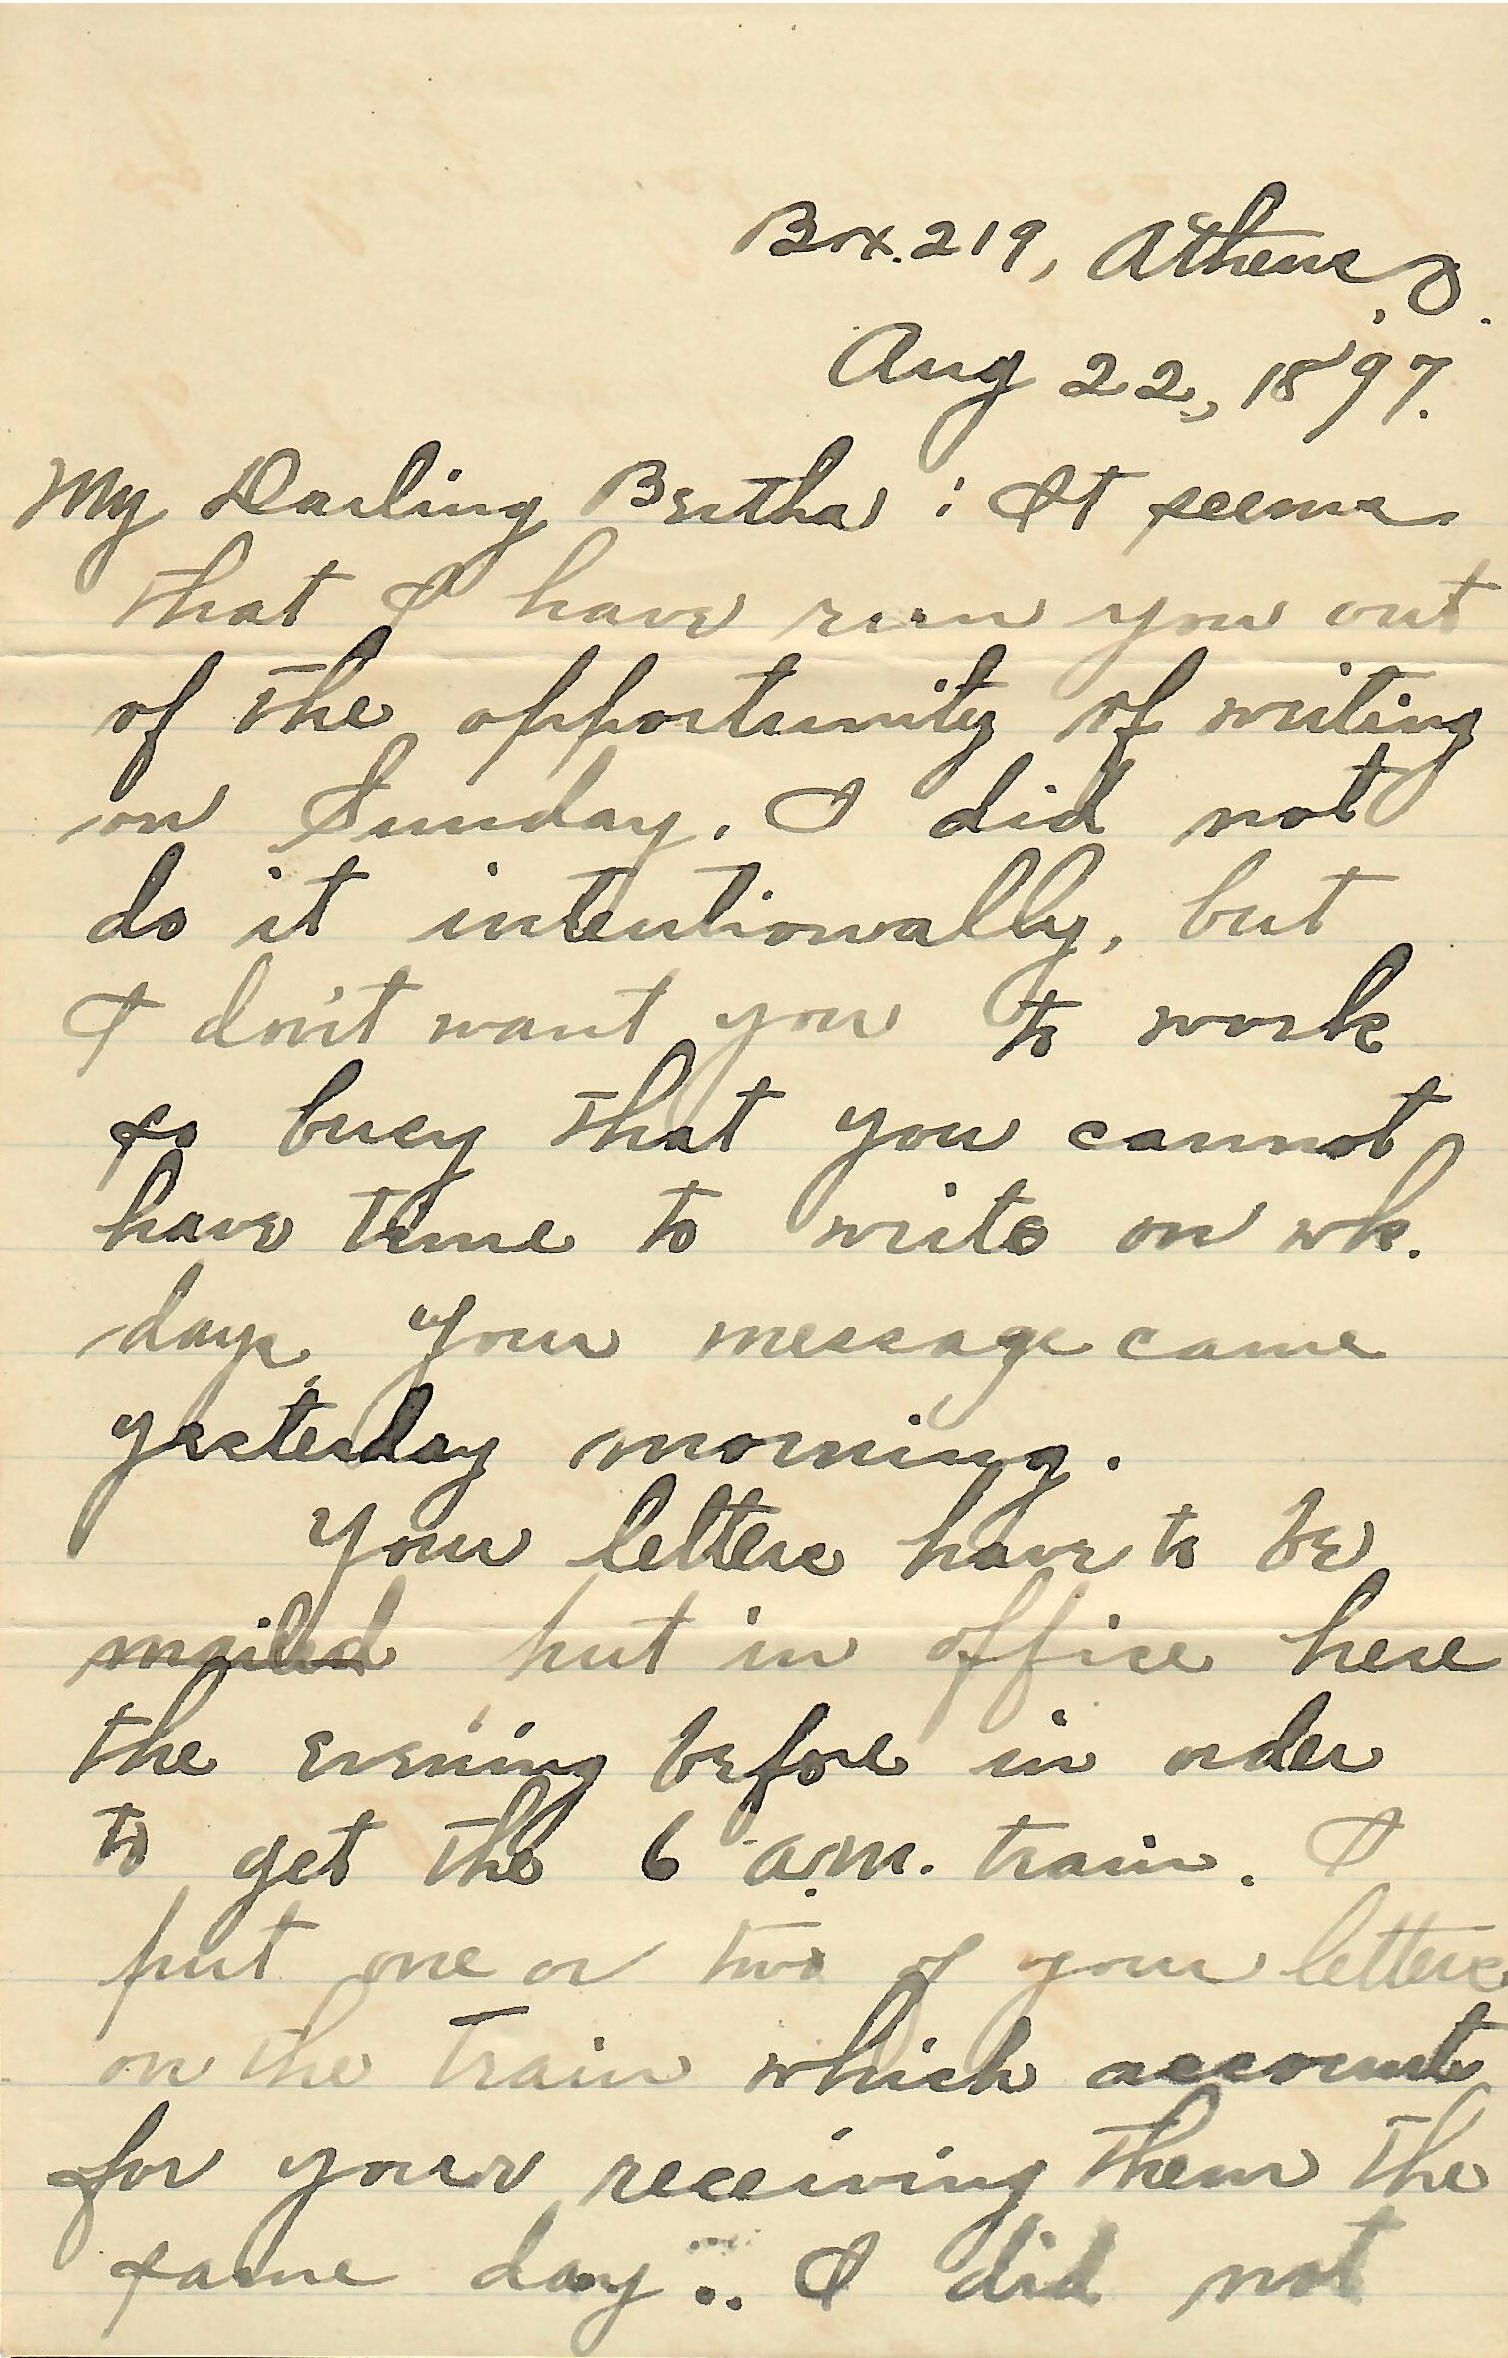 Box. 219, Athens, O.
Aug 22, 1897.
My Darling Bertha: It seems
that I have run you out
of the opportunity of writing
on Sunday. I did not
do it intentionally, but
I don't want you to work
so busy that you cannot
have time to write on wk.
days. Your message came
yesterday morning.
Your letters have to be
mailed put in office here
the evening before in order
to get the 6 a.m. train. I
put one or two of your letters
on the train which account
for your receiving them the
same day.. I did not